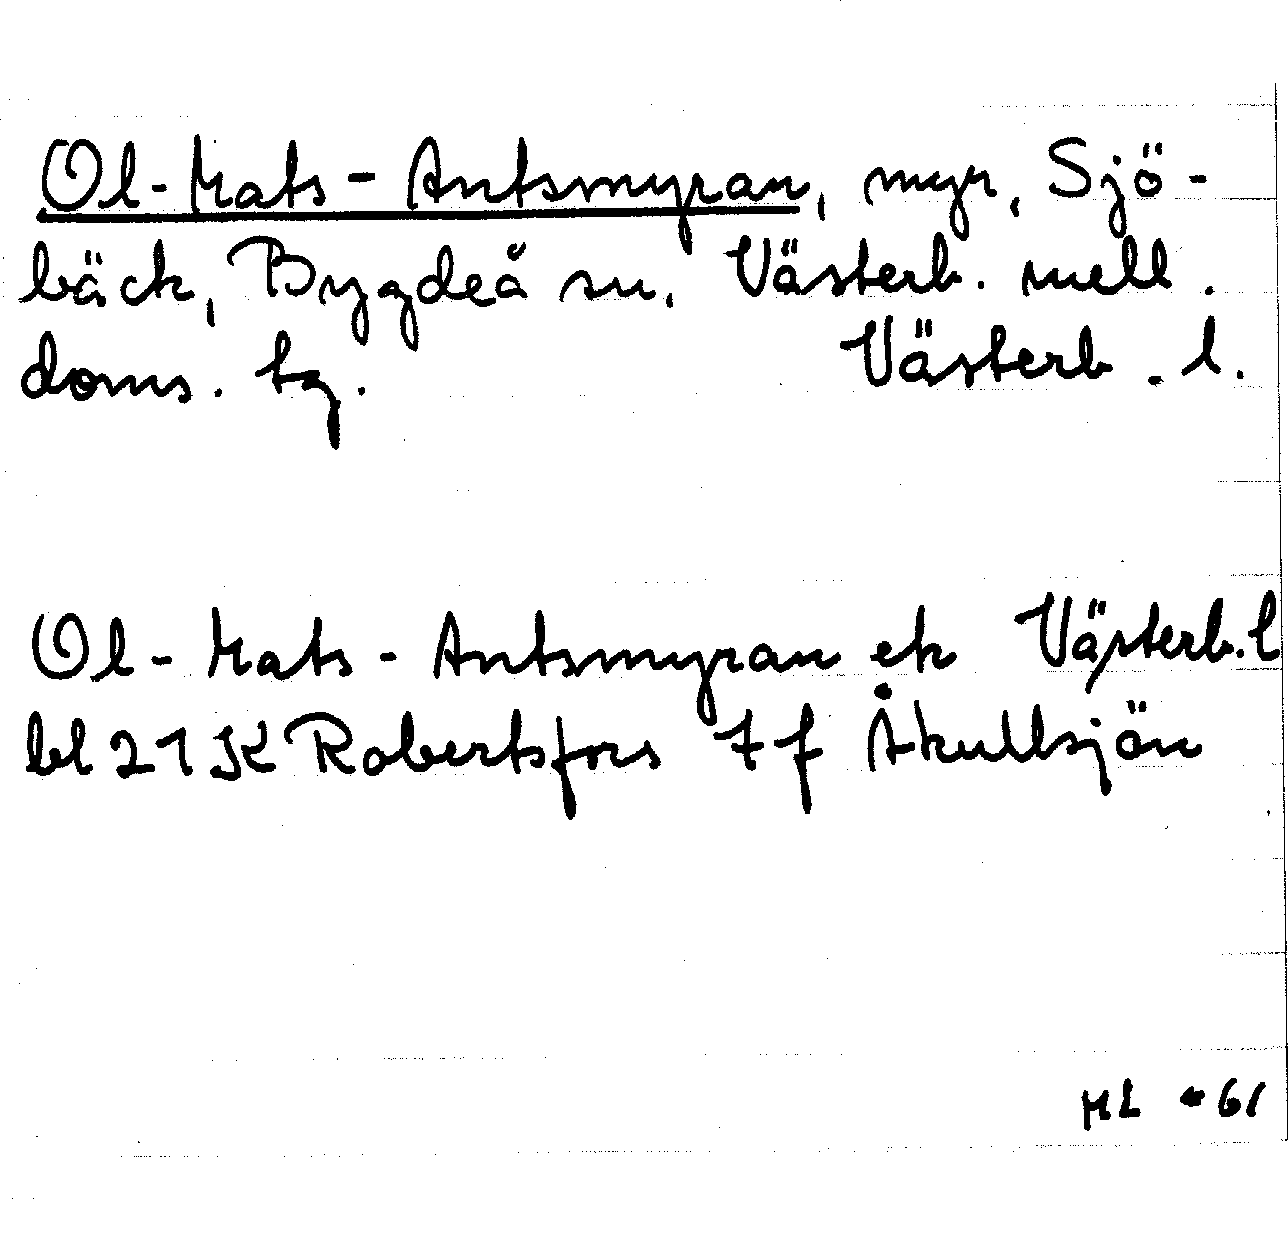 Ol-Mats-Antsmyran, myr, Sjö-
bäck, Bygdeå sn, Västerb. mell.
doms. tg. Västerb. l.
Ol-Mats-Antsmyran ek Västerb. l
bl 21 K Robertsfors 7 f Åkullsjön
ML -61